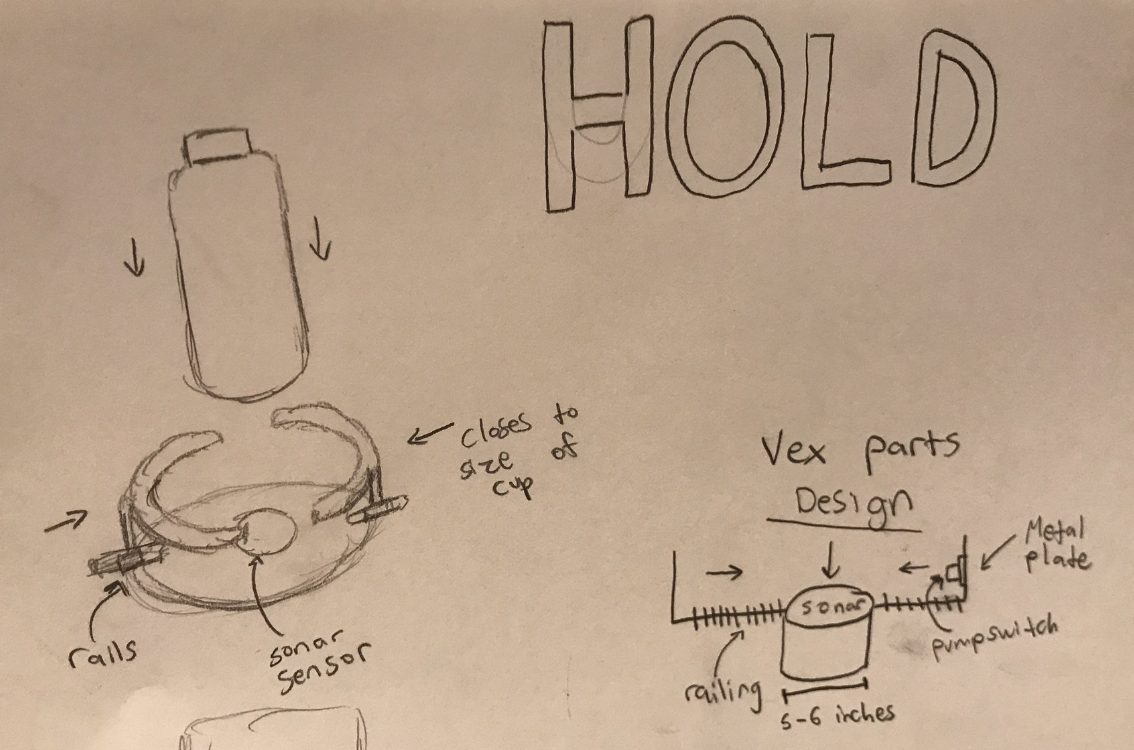 HOLD
closes to
size of
cup
rails
sonar
sensor
Vex parts
Design
Metal
plate
sonar
pumpswitch
railing
5-6 inches